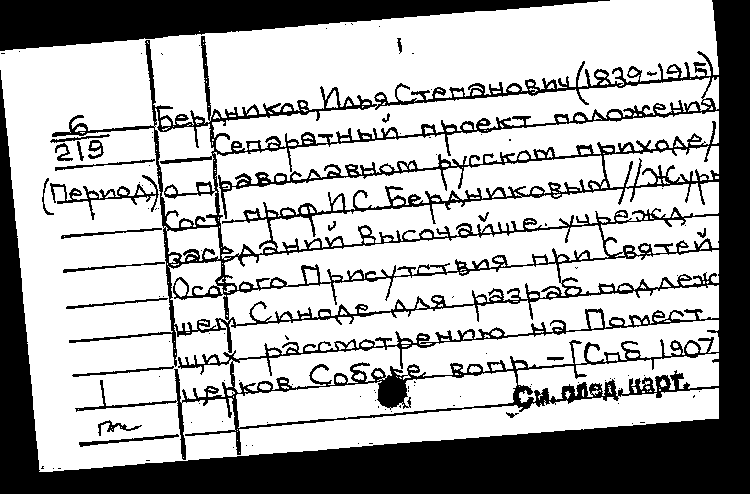 1
6 Бердников, Илья Степанович (1839-1915).
219 Сепаратный проект положения
(Период.) о православном русском приходе /
Сост. проф. И.С. Бердниковым // Журн
заседаний Высочайше учрежд.
Особого Присутствия при Святей
шем Синоде для разраб. подлеж
щих рассмотрению на Помест.
1 церков. Соборе вопр. – [Спб., 1907
См. след. карт.